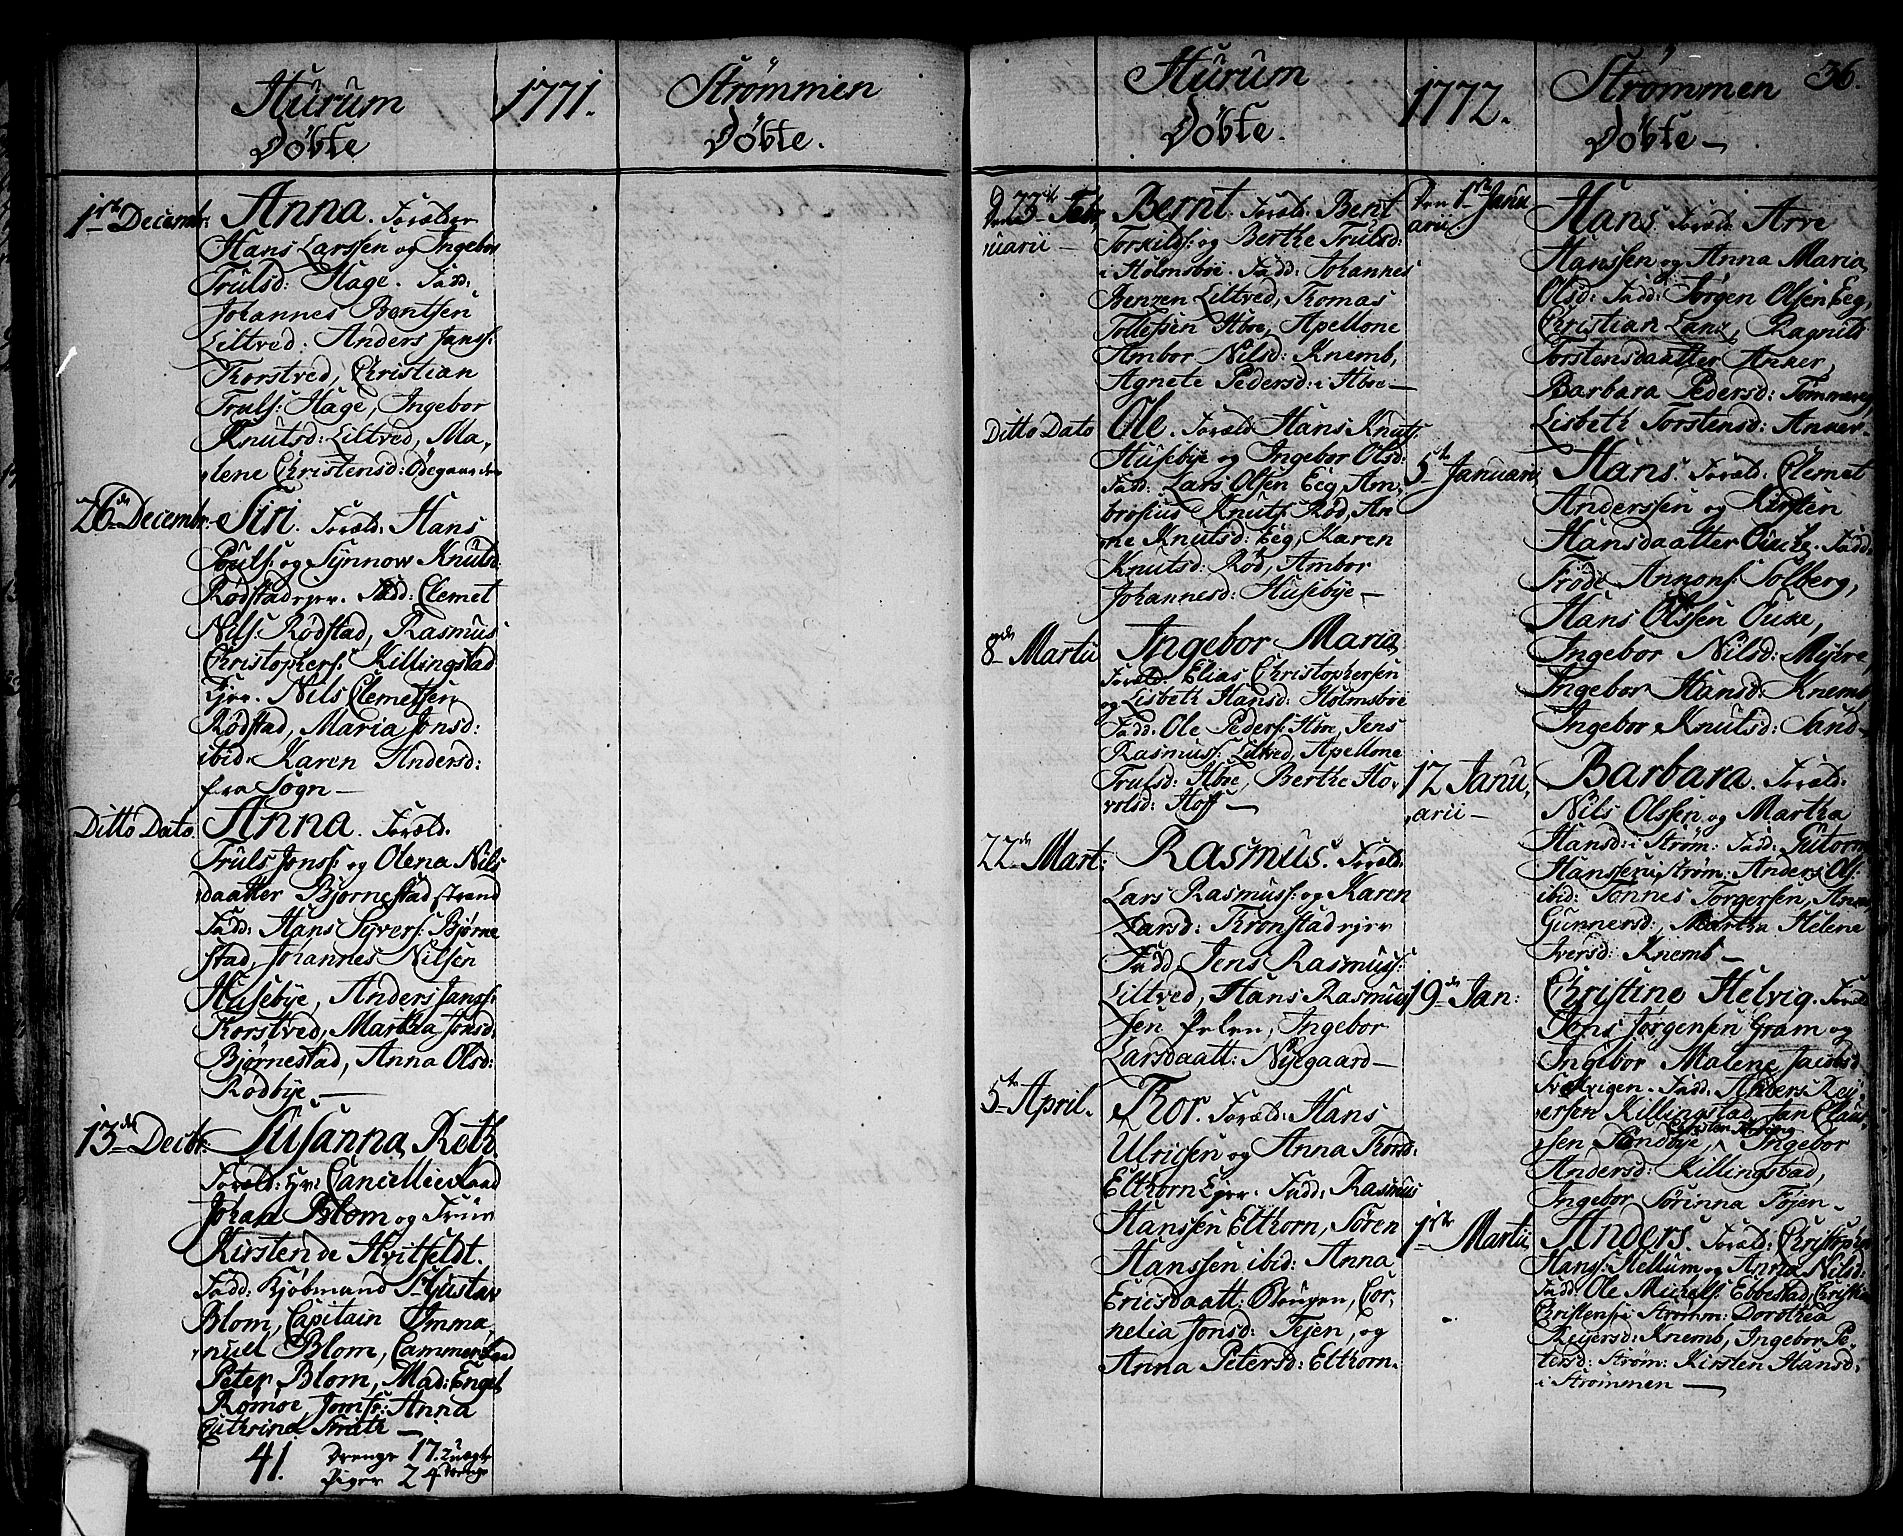 Hurum
Døbte
1771.
Strømmen
Døbte.
1ste Decembr:
Anna. Forælder
Hans Larssen og Ingebor
Trulsd: Hage. Fadd:
Johannes Bentsen
Liltved. Anders Jansf:
Thorstved, Christian
Trulsf: Hage, Ingebor
Knutsd: Liltved, Ma,
lene Christensd: Ødegaarden
26de Decembr:
Siri. Foræld: Hans
Poulsf: og Synnow Knutsd:
Rødstadejer. Fadd: Clemet
Nilsf: Rødstad, Rasmus
Christophersf: Killingstad
Ejer. Nils Clemetsen
Rødstad, Maria Jonsd:
ibid: Karen Andersd:
fra Sogn —
Ditto Dato.
Anna. Foræld:
Truls Jonsf: og Olena Nils
daatter Bjørnestad strand
Fadd: Hans Syversf: Bjørne
stad, Johannes Nilsen
Husebye, Anders Jansf:
Korstved, Martha Jonsd:
Bjørnestad, Anna Olsd:
Rødbye. —
13de Decbr:
Susanna Reth.
Foræld: Hr: Cancellieraad
Johan Blom og Frue
Kirsten de Hvitfeldt.
Fadd: Kjøbmand Sr Gustav
Blom, Capitain Imma,
nuel Blom, Cammerraad
Peter Blom, Mad: Engel
Romøe, Jomfr: Anna
Cathrine
41. Drenge 17.
Piger 24
Hurum
Døbte.
1772.
Strømmen
Døbte —
36.
D. 23de Febr
uarii —
Bernt. Foræld: Bent
Torkildsf: og Berthe Trulsd:
i Holmsboe. Fadd: Johannes
Benzen Liltved, Thomas
Tollefsen Hboe, Apellone
Ambor Nilsd: Knemb,
Agnete Pedersd: i Hboe —
Ditto Dato
Ole. Foræld: Hans Knutsf.
Husebye og Ingebor Olsd:
Fadd: Lars Olsen Eeg, Am,
brosius Knutsf: Rød, An
ne Knutsd: Eeg, Karen
Knutsd: Rød, Ambor
Johannesd: Husebye —
8de Martii
Ingebor Maria
Foræld. Elias Christophersen
og Lisbeth Hansd: Holmsboe
Fadd. Ole Pedersf: Hboe, Jens
Rasmusf: Liltved, Apellone
Trulsd: Hboe, Berthe Ho,
volsd: Hoff —
22de Mart:
Rasmus. Foræld:
Lars Rasmusf: og Karen
Larsd: Thronstadejer
Fadd. Jens Rasmusf:
Liltved, Hans Rasmus
sen, Ingebor
Larsdaatt: Nyegaard —
5te April.
Thor. Foræld: Hans
Ulricsen og Anna Thorsd:
Elthorn Ejer. Fadd: Rasmus
Hanssen Elthorn, Søren
Hanssen ibid: Anna
Ericsdaatt:, Cor,
nelia Jonsd: Tejen, og
Anna Petersd: Elthorn.
Den 1ste Janu
arii.
Hans. Foræld: Arve
Hanssen og Anna Maria
Olsd: Fadd: Jørgen Olsen Eeg,
Christian Lanz, Ragnild
Torstensdaatter Anker,
Barbara Pedersd: Tømmeraas,
Lisbeth Torstensd: Anker.
5te Januarii
Hans. Foræld. Clemet
Anderssen og Kirsten
Hansdaatter. Fadd:
Frøde Annonsf: Solberg,
Hans Olssen,
Ingebor Nilsd: Myhre,
Ingebor Hansd: Knemb
Ingebor Knutsd: Sand —
12 Janu,
arii —
Barbara. Foræld:
Nils Olssen og Martha
Hansd: i Strøm: Fadd: Gutorm
Hanssen i Strøm: Anders Olsf:
ibid: Tønnes Torgersen, Anne
Gunnersd:, Martha Helene
Iversd: Knemb —
19de Jan:
Christine Helvig. Foræld
Jens Jørgensen Gram og
Ingebor Malene Jacobsd
Svelvigen. Fadd: Anders Rei,
ersen Killingstad, Jan Claus,
sen Sundbye, Ingebor
Andersd: Killingstad,
Ingebor Sørinna Fojen.
1ste Martii
Anders. Foræld: Christopher
Hansf: Hellum og Anna Nilsd:
Fadd: Ole Michelsf: Ebbestad, Christian
Christensf: i Strømm: Dorothea
Reijersd: Knemb, Ingebor Pe,
tersd: Strøm: Kirsten Hansd:
i Strømmen —